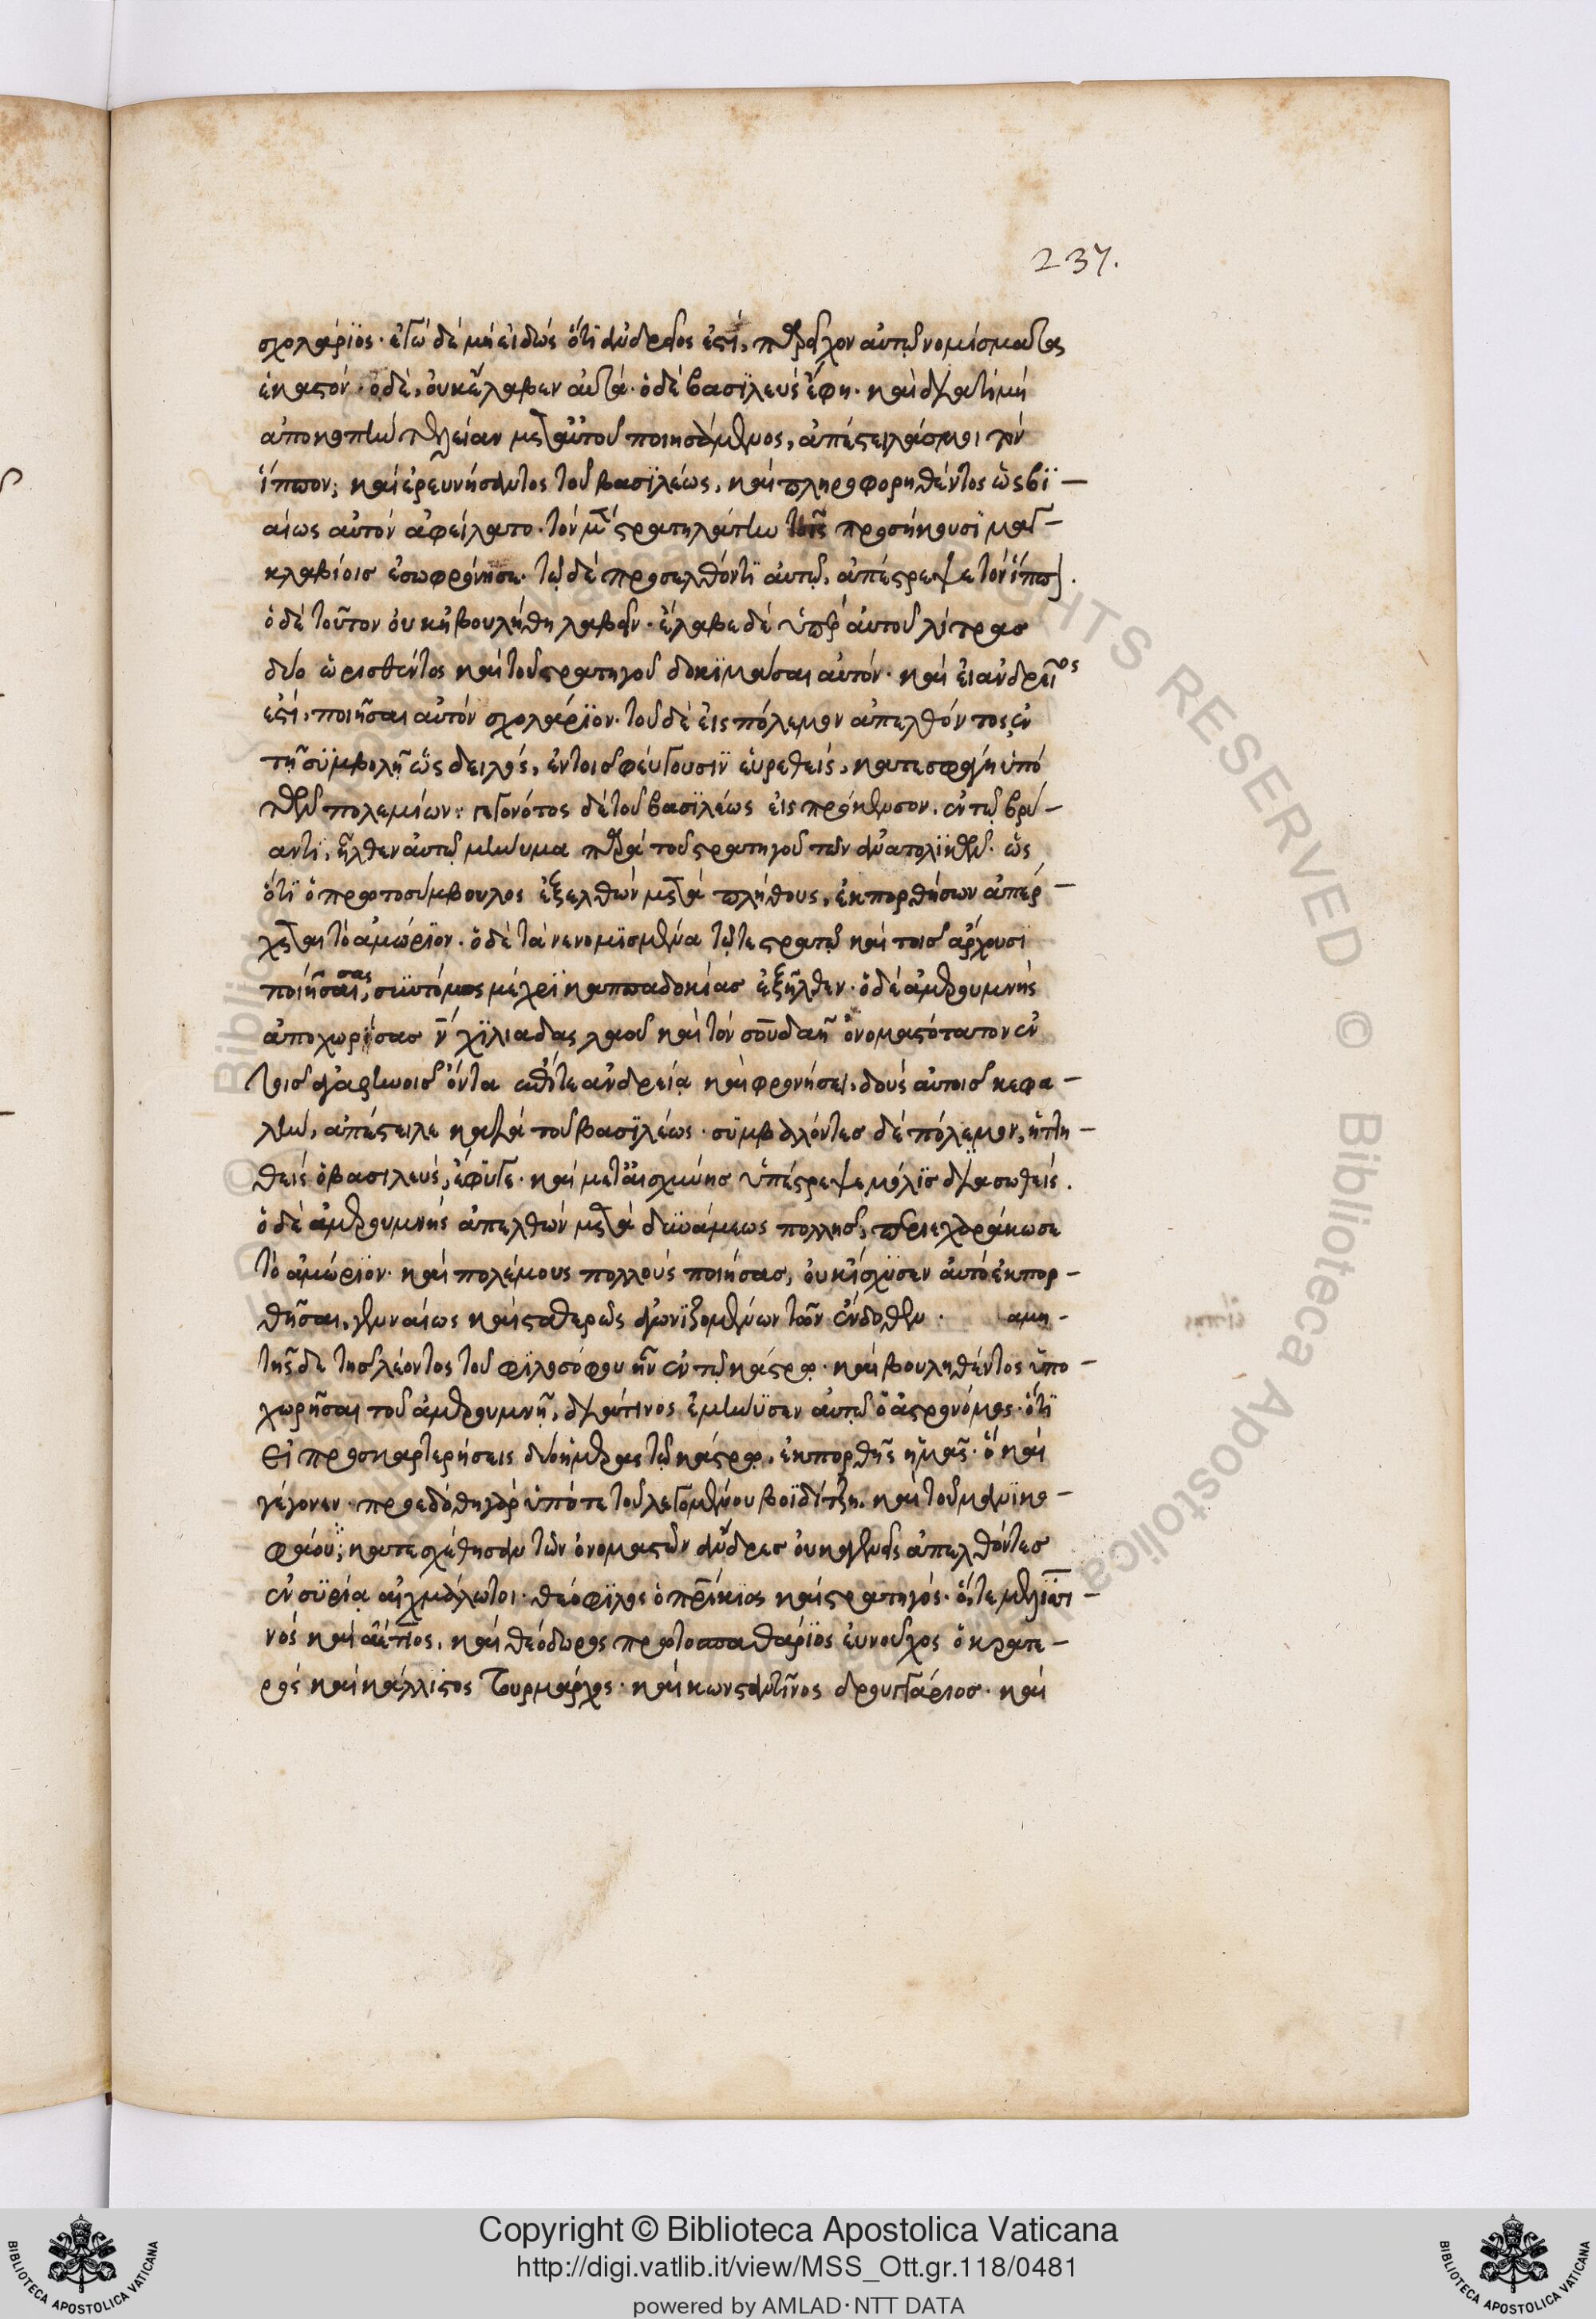 237.
σχολάριος· ἐγὼ δὲ μὴ εἰδὼς ὅτι ἄνανδρος ἐστί, παρεῖχον αὐτῷ νομίσματα
ἑκατόν· ὁ δὲ, οὐκ ἔλαβεν αὐτά· ὁ δὲ βασιλεὺς ἔφη· καὶ διατί μὴ
ἀποκοπὴν τελείαν μετ' αὐτοῦ ποιησάμενος, ἀπέστειλάς μοι τὸν
ἵππον; καὶ ἐρευνήσαντος τοῦ βασιλέως, καὶ πληροφορηθέντος ὡς βι-
αίως αὐτὸν ἀφείλατο· τὸν μὲν στρατηλάτην τοῖς προσήκουσι μαγ-
κλαβίοις ἐσωφρόνησε· τῷ δὲ προσελθόντι αὐτῷ, ἀπέστρεψε τὸν ἵππον.
ὁ δὲ τοῦτον οὐκ ἠβουλήθη λαβεῖν· ἔλαβε δὲ ὑπὲρ αὐτοῦ λίτρας
δύο ὁρισθέντος καὶ τοῦ στρατηγοῦ δοκιμάσαι αὐτόν· καὶ εἰ ἀνδρεῖος
ἐστί, ποιῆσαι αὐτὸν σχολάριον· τοῦ δὲ εἰς πόλεμον ἀπελθόντος, ἐν
τῇ συμβολῇ ὡς δειλός, ἐν τοῖς φεύγουσιν εὑρεθείς, κατεσφάγη ὑπὸ
τῶν πολεμίων: γεγονότος δὲ τοῦ βασιλέως εἰς πρόκενσον, ἐν τῷ βρύ-
αντι, ἦλθεν αὐτῷ μήνυμα παρὰ τοῦ στρατηγοῦ τῶν ἀνατολικῶν· ὡς
ὅτι ὁ πρωτοσύμβουλος ἐξελθὼν μετὰ πλήθους, ἐκπορθήσων ἀπέρ-
χεται τὸ ἀμώριον· ὁ δὲ τὰ νενομισμένα τῷ τε στρατῷ καὶ τοῖς ἄρχουσι
ποιήσας, συντόμως μέχρι καππαδοκίας ἐξῆλθεν· ὁ δὲ ἀμερουμνῆς
ἀποχωρίσας ν χιλιάδας λαοῦ καὶ τὸν σουδαῆ ὀνομαστότατον ἐν
τοῖς ἀγαρηνοῖς ὄντα ἐπί τε ἀνδρείᾳ καὶ φρονήσει, δοὺς αὐτοῖς κεφα-
λήν, ἀπέστειλε κατὰ τοῦ βασιλέως· συμβαλόντες δὲ πόλεμον, ἡττη-
θεὶς ὁ βασιλεύς, ἔφυγε· καὶ μετ' αἰσχύνης ὑπέστρεψε μόλις διασωθείς.
ὁ δὲ ἀμερουμνῆς ἀπελθὼν μετὰ δυνάμεως πολλῆς, περιεχαράκωσε
τὸ ἀμώριον· καὶ πολέμους πολλοὺς ποιήσας, οὐκ ἴσχυσεν αὐτὸ ἐκπορ-
θῆσαι, γενναίως καὶ σταθερῶς ἀγωνιζομένων τῶν ἔνδοθεν · αμη-
τῆς δε τῆς λέοντος τοῦ φιλοσόφου ἦν ἐν τῷ κάστρῳ· καὶ βουληθέντος ὑπο-
χωρῆσαι τοῦ ἀμερουμνῆ, διά τινος ἐμήνυσεν αὐτῷ ὁ ἀστρονόμος· ὅτι
εἰ προσκαρτερήσεις δύο ἡμέρας τῷ κάστρῳ, ἐκπορθεῖς ἡμᾶς· ὃ καὶ
γέγονεν· προεδόθη γὰρ ὑπό τε τοῦ λεγομένου βοϊδίτζη, καὶ τοῦ μανικο-
φάου· κατεσχέθησαν τῶν ὀνομαστῶν ἄνδρες οὐκ ἀγενεῖς ἀπελθόντες
ἐν συρίᾳ αἰχμάλωτοι· θεόφιλος ὁ πατρίκιος καὶ στρατηγός· ὅ τε μελισση-
νός καὶ ἀέτιος, καὶ θεόδωρος πρωτοσπαθάριος εὐνοῦχος ὁ κρατε-
ρός καὶ κάλλιστος τουρμάρχης· καὶ κωνσταντῖνος δρουγγάριος· καὶ
Copyright © Biblioteca Apostolica Vaticana
http://digi.vatlib.it/view/MSS_Ott.gr.118/0481
powered by AMLAD·NTT DATA